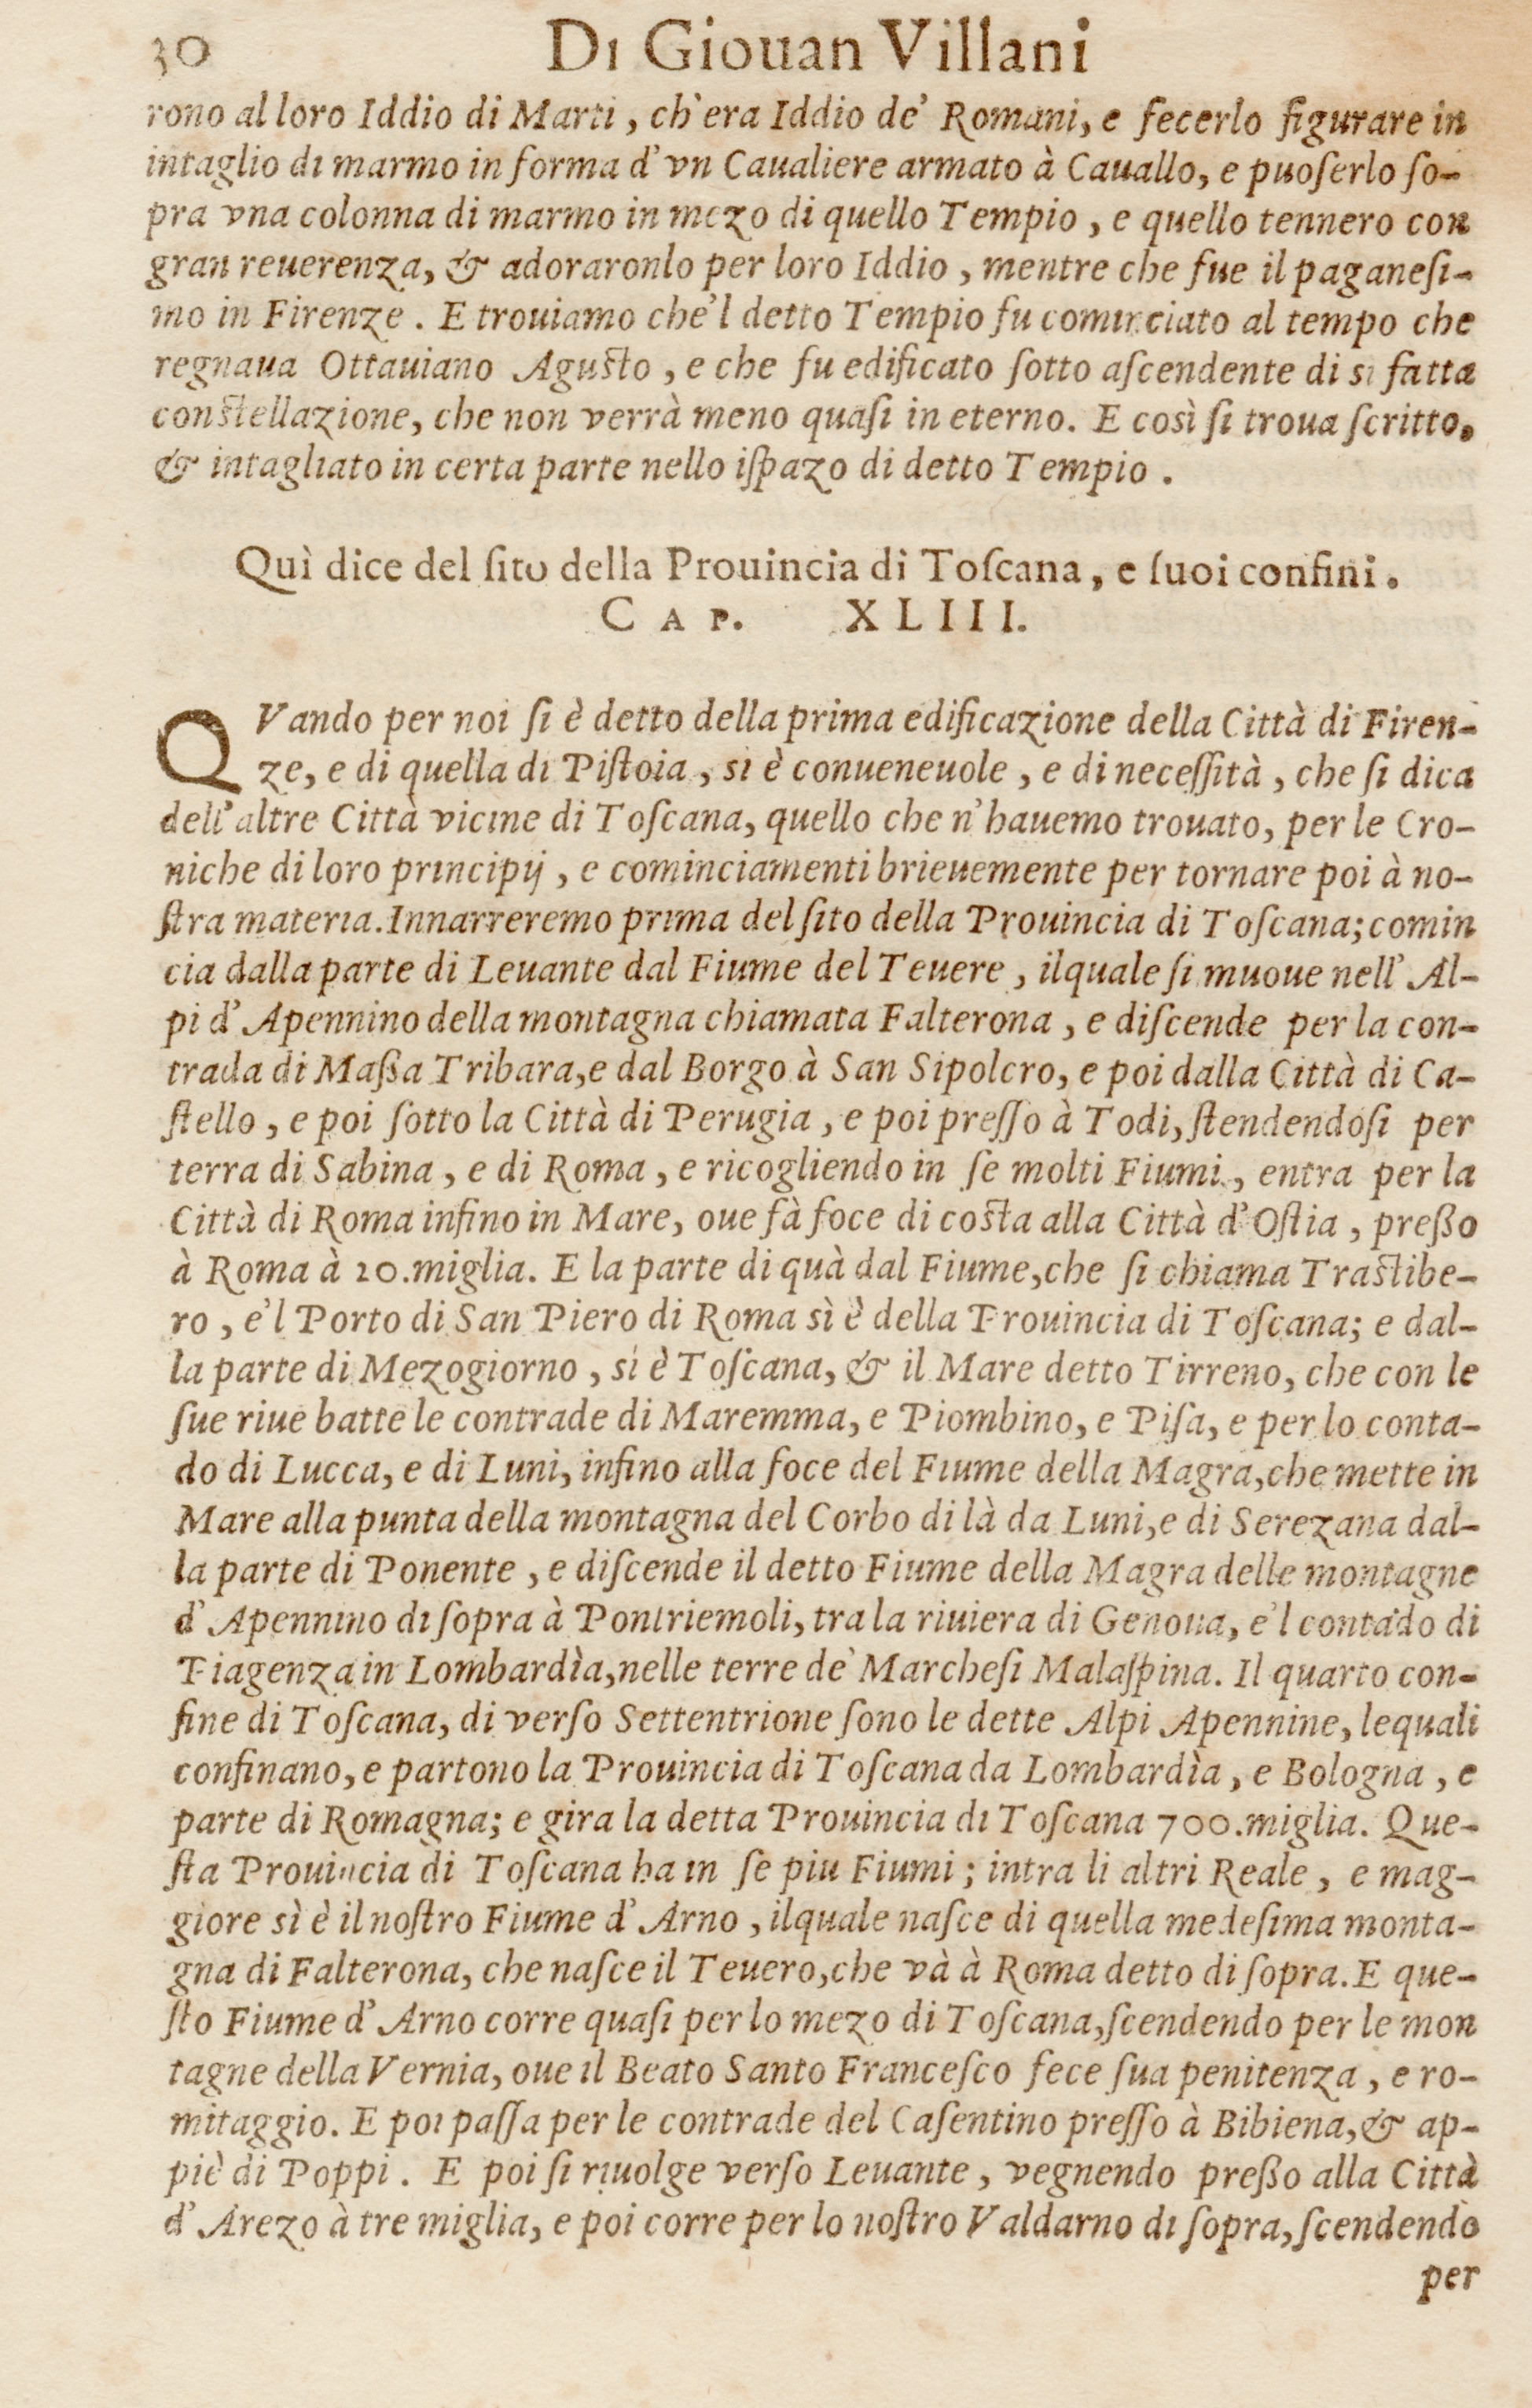 30 Di Giouan Villani
rono al loro Iddio di Marti, ch'era Iddio de' Romani, e fecerlo figurare in
intaglio di marmo in forma d'vn Caualiere armato à Cauallo, e puoſerlo ſo-
pra vna colonna di marmo in mezo di quello Tempio, e quello tennero con
gran reuerenza, & adoraronlo per loro Iddio, mentre che fue il paganeſi-
mo in Firenze. E trouiamo che'l detto Tempio fu cominciato al tempo che
regnaua Ottauiano Aguſto, e che fu edificato ſotto aſcendente di si fatta
conſtellazione, che non verrà meno quaſi in eterno. E così ſi troua ſcritto,
& intagliato in certa parte nello iſpazo di detto Tempio.
Quì dice del ſito della Prouincia di Toſcana, e ſuoi confini.
CAP. XLIII.
QVando per noi ſi è detto della prima edificazione della Città di Firen-
ze, e di quella di Piſtoia, si è conueneuole, e di neceſſità, che ſi dica
dell'altre Città vicine di Toſcana, quello che n'hauemo trouato, per le Cro-
niche di loro principij, e cominciamenti brieuemente per tornare poi à no-
ſtra materia. Innarreremo prima del ſito della Prouincia di Toſcana; comin
cia dalla parte di Leuante dal Fiume del Teuere, ilquale ſi muoue nell'Al-
pi d'Apennino della montagna chiamata Falterona, e diſcende per la con-
trada di Maßa Tribara, e dal Borgo à San Sipolcro, e poi dalla Città di Ca-
ſtello, e poi ſotto la Città di Perugia, e poi preſſo à Todi, ſtendendoſi per
terra di Sabina, e di Roma, e ricogliendo in ſe molti Fiumi, entra per la
Città di Roma infino in Mare, oue fà foce di coſta alla Città d'Oſtia, preßo
à Roma à 20. miglia. E la parte di quà dal Fiume, che ſi chiama Traſtibe-
ro, e'l Porto di San Piero di Roma sì è della Prouincia di Toſcana; e dal-
la parte di Mezogiorno, si è Toſcana, & il Mare detto Tirreno, che con le
ſue riue batte le contrade di Maremma, e Piombino, e Piſa, e per lo conta-
do di Lucca, e di Luni, infino alla foce del Fiume della Magra, che mette in
Mare alla punta della montagna del Corbo di là da Luni, e di Serezana dal-
la parte di Ponente, e diſcende il detto Fiume della Magra delle montagne
d'Apennino di ſopra à Pontriemoli, tra la riuiera di Genoua, e'l contado di
Piagenza in Lombardìa, nelle terre de' Marcheſi Malaſpina. Il quarto con-
fine di Toſcana, di verſo Settentrione ſono le dette Alpi Apennine, lequali
confinano, e partono la Prouincia di Toſcana da Lombardìa, e Bologna, e
parte di Romagna; e gira la detta Prouincia di Toſcana 700. miglia. Que-
ſta Prouincia di Toſcana ha in ſe piu Fiumi; intra li altri Reale, e mag-
giore sì è il noſtro Fiume d'Arno, ilquale naſce di quella medeſima monta-
gna di Falterona, che naſce il Teuero, che và à Roma detto di ſopra. E que-
ſto Fiume d'Arno corre quaſi per lo mezo di Toſcana, ſcendendo per le mon
tagne della Vernia, oue il Beato Santo Franceſco fece ſua penitenza, e ro-
mitaggio. E poi paſſa per le contrade del Caſentino preſſo à Bibiena, & ap-
piè di Poppi. E poi ſi riuolge verſo Leuante, vegnendo preßo alla Città
d'Arezo à tre miglia, e poi corre per lo noſtro Valdarno di ſopra, ſcendendo
per